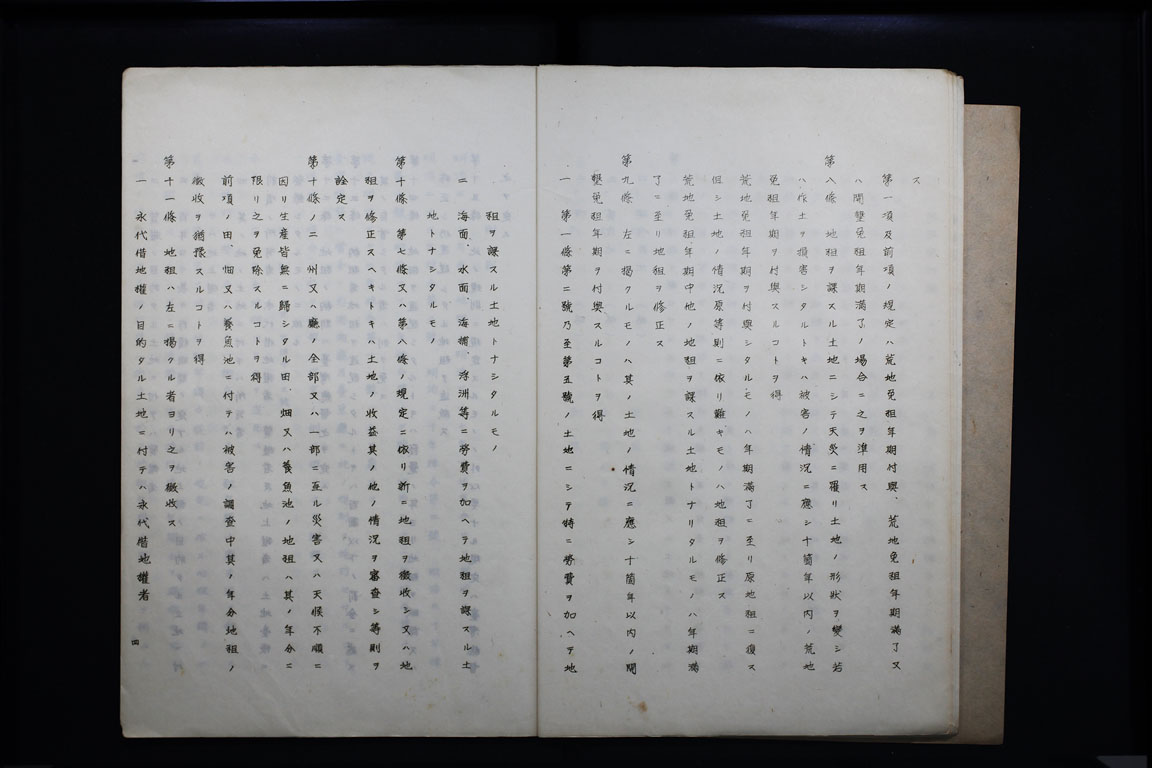 ス
第一項及前項ノ規定ハ荒地免租年期付與、荒地免租年期滿了又
ハ開墾免租年期滿了ノ場合ニ之ヲ準用ス
第八條 地租ヲ課スル土地ニシテ天災ニ罹リ土地ノ形狀ヲ變シ若
ハ作土ヲ損害シタルトキハ被害ノ情況ニ應シ十箇年以內ノ荒地
免租年期ヲ付與スルコトヲ得
荒地免租年期ヲ付與シタルモノハ年期滿了ニ至リ原地租ニ復ス
但シ土地ノ情況原等則ニ依リ難キモノハ地租ヲ修正ス
荒地免租年期中他ノ地租ヲ課スル土地トナリタルモノハ年期滿
了ニ至リ地租ヲ修正ス
第九條 左ニ揭クルモノハ其ノ土地ノ情況ニ應シ十箇年以內ノ開
墾免租年期ヲ付與スルコトヲ得
一 第一條第二號乃至第五號ノ土地ニシテ特ニ勞費ヲ加ヘテ地
租ヲ課スル土地トナシタルモノ
二 海面、水面、海埔、浮洲等ニ勞費ヲ加ヘテ地租ヲ課スル土
地トナシタルモノ
第十條 第七條又ハ第八條ノ規定ニ依リ新ニ地租ヲ徵收シ又ハ地
租ヲ修正スヘキトキハ土地ノ收益其ノ他ノ情況ヲ審查シ等則ヲ
詮定ス
第十條ノ二 州又ハ廳ノ全部又ハ一部ニ亙ル災害又ハ天候不順ニ
因リ生產皆無ニ歸シタル田、畑又ハ養魚池ノ地租ハ其ノ年分ニ
限リ之ヲ免除スルコトヲ得
前項ノ田、畑又ハ養魚池ニ付テハ被害ノ調查中其ノ年分地租ノ
徵收ヲ猶豫スルコトヲ得
第十一條 地租ハ左ニ揭クル者ヨリ之ヲ徵收ス
一 永代借地權ノ目的タル土地ニ付テハ永代借地權者
四